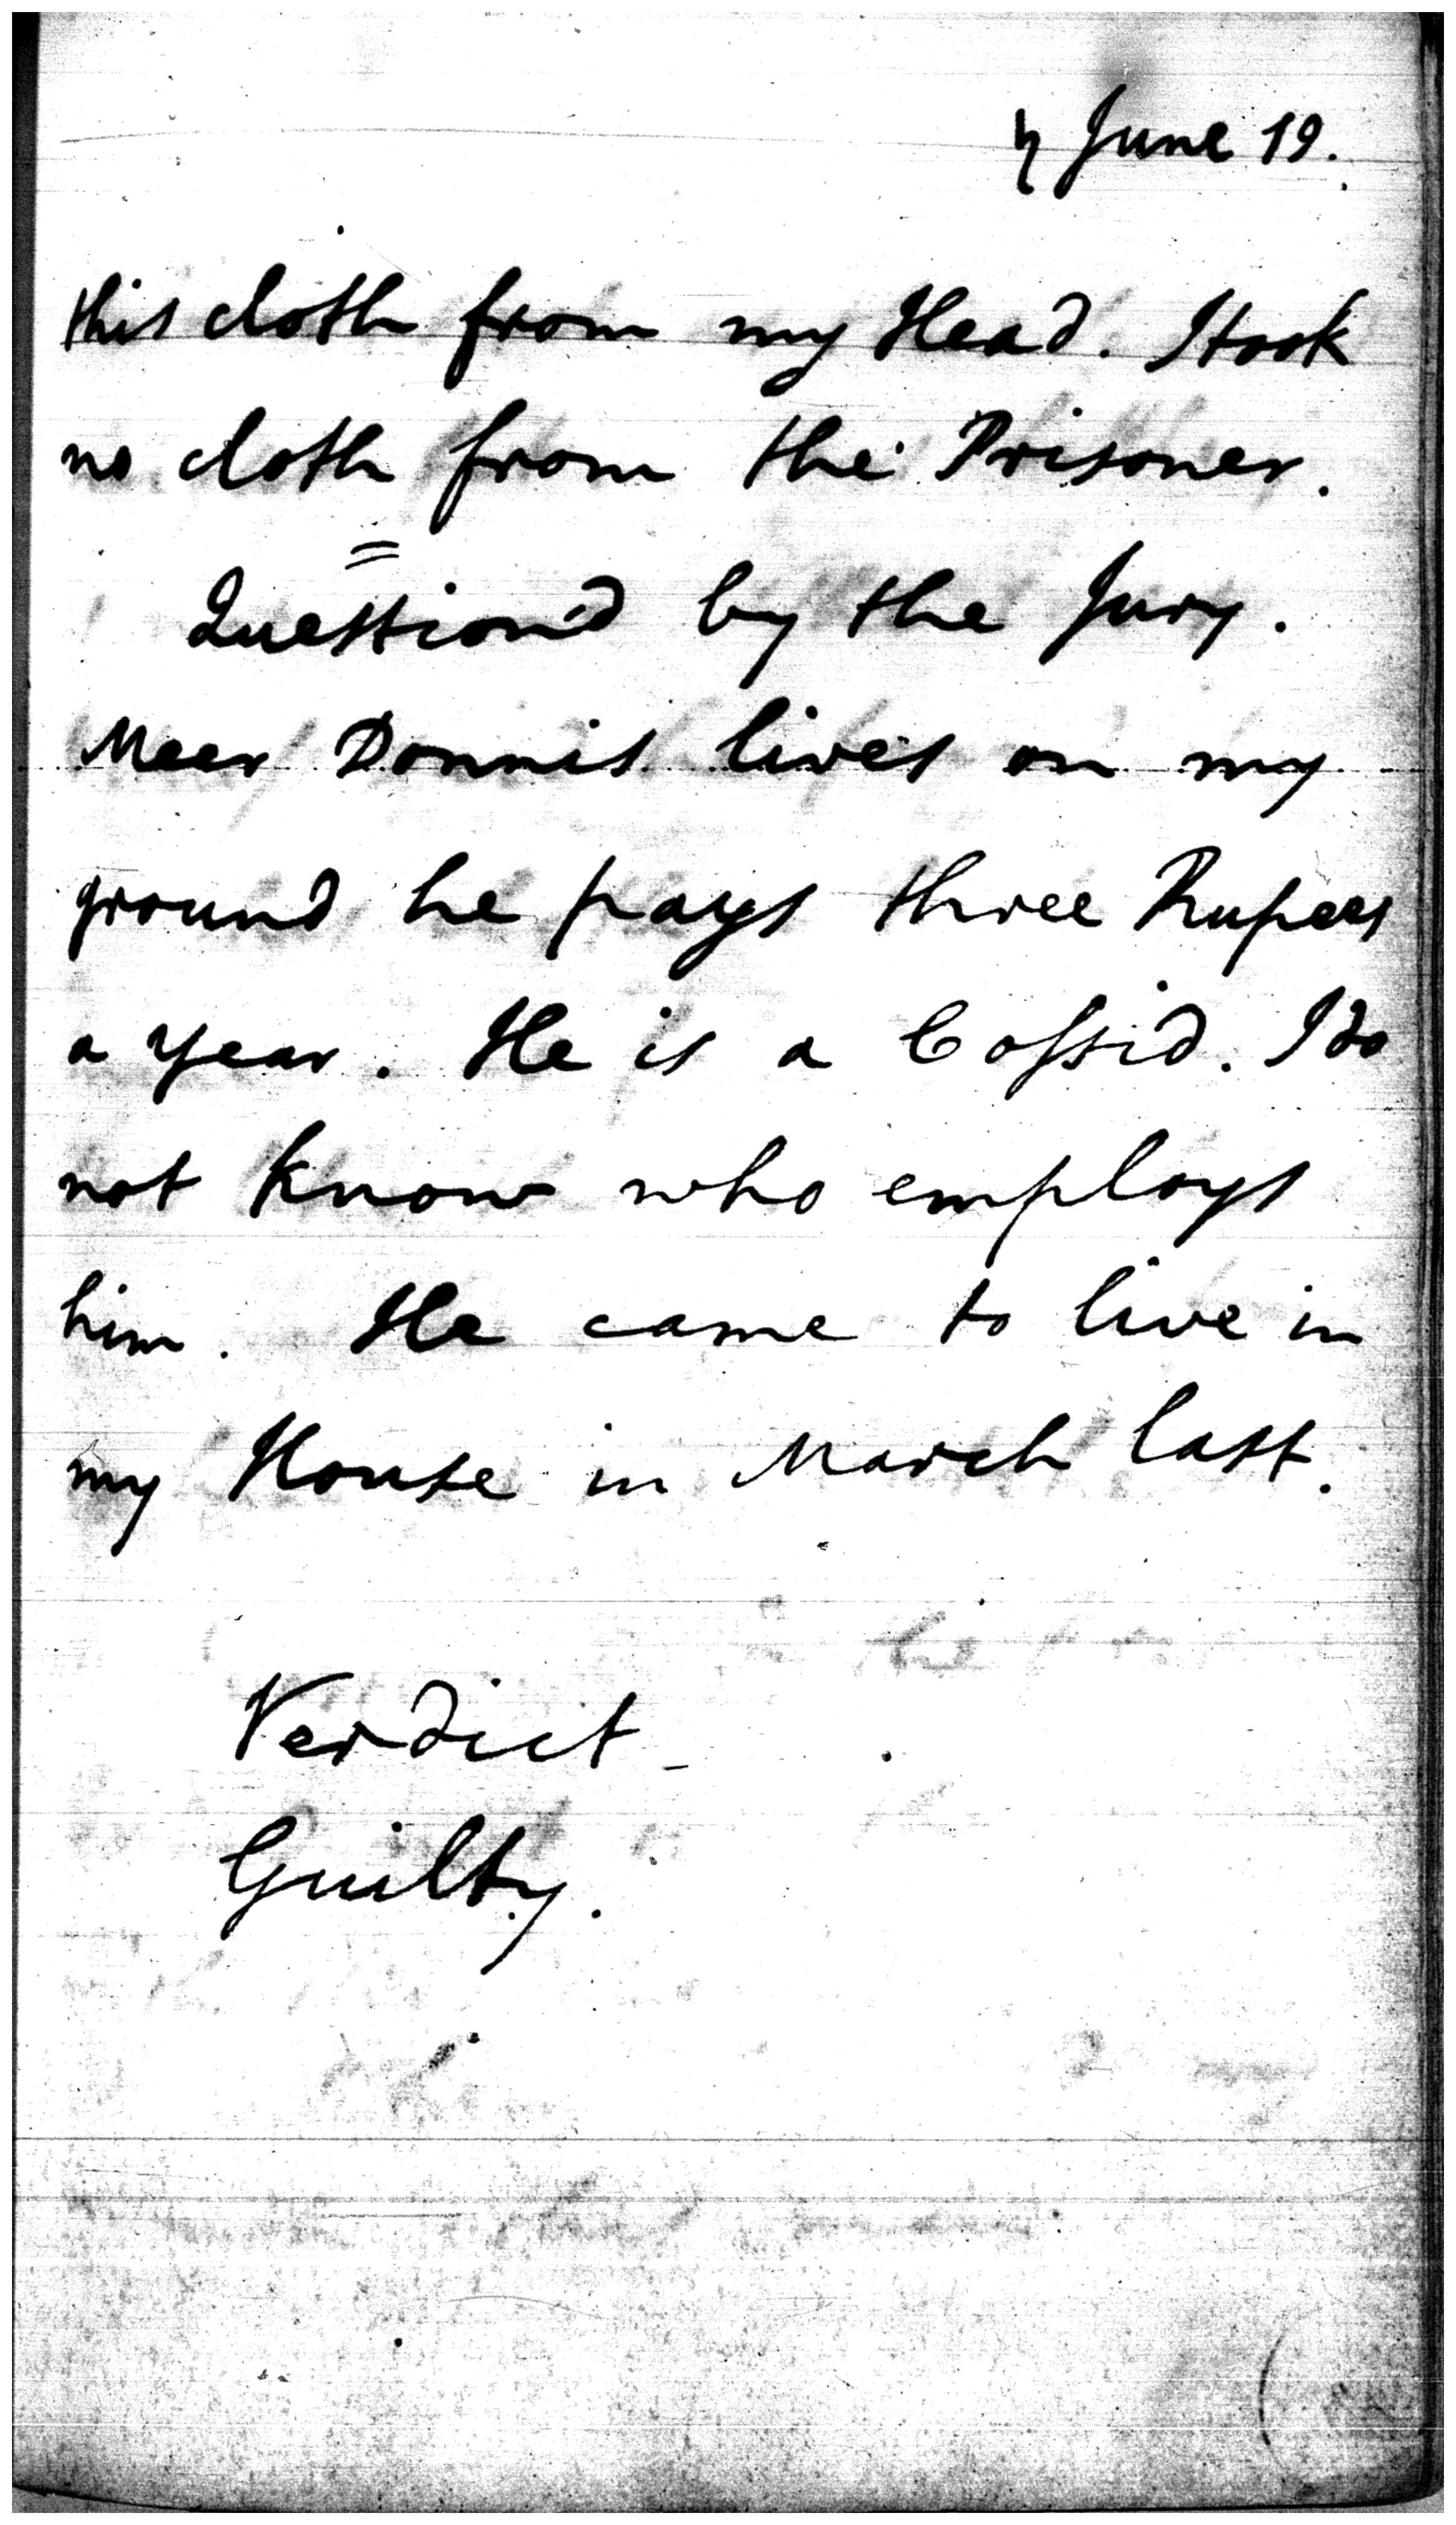 June 19.
this cloth from my Head. I took
no cloth from the Prisoner.
Question'd by the Jury.
Meer Donnis lives on my
ground he pays three Rupees
a year. He is a Cossid. I do
not know who employs
him. He came to live in
my House in March last.
Verdict_
Guilty.